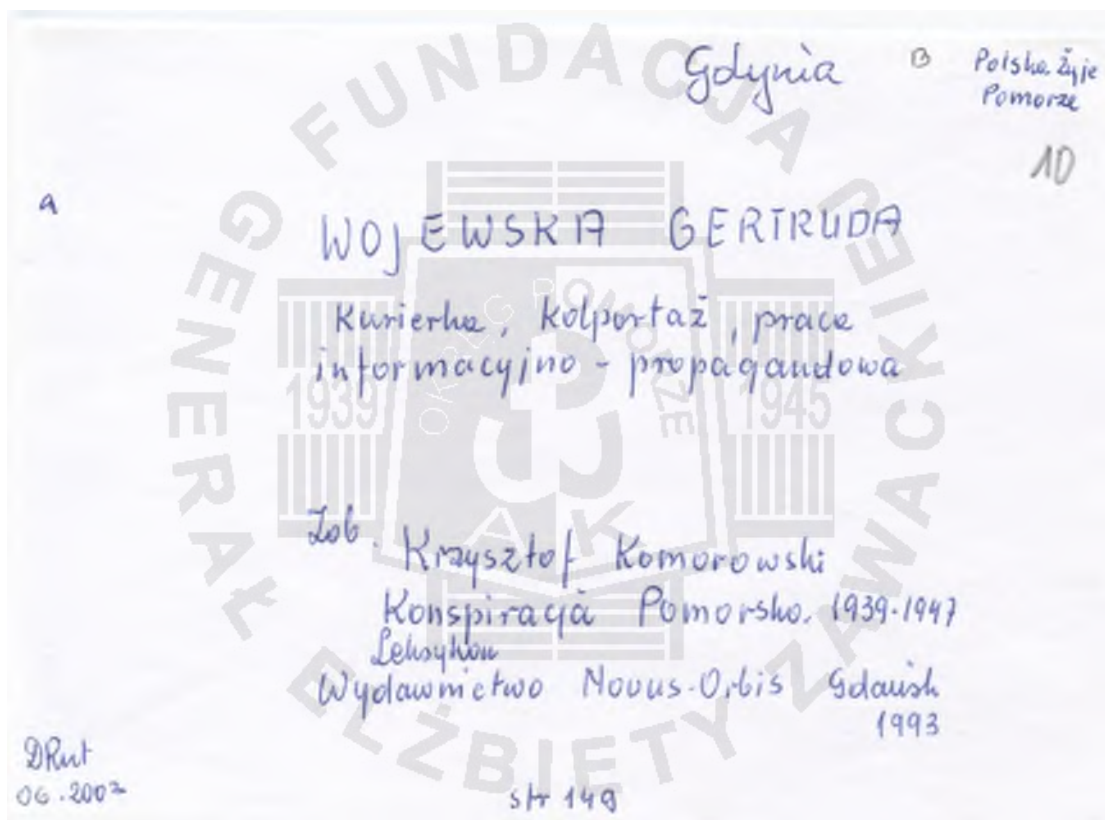 Gdynia B Polska Żyje
Pomorze
10
a
WOJEWSKA GERTRUDA
Kurierka, kolportaż, praca
informacyjno - propagandowa
Zob. Krzysztof Komorowski
Konspiracja Pomorska 1939-1947
Leksykon
Wydawnictwo Novus-Orbis Gdańsk
1993
DRut
06.2002
str 149
FUNDACJA GENERAŁ ELŻBIETY ZAWACKIEJ
OKRĘG POMORZE
1939 1945
AK